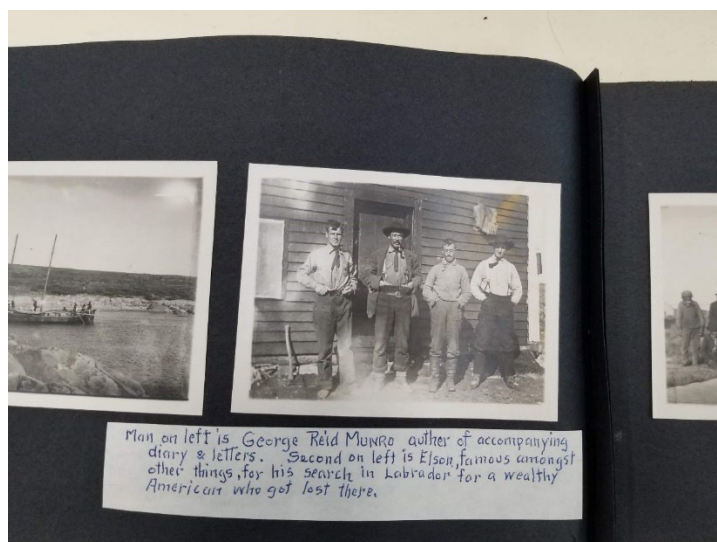 Man on left is George Reid MUNRO auther of accompanying
diary & letters. Second on left is Elson, famous amongst
other things, for his search in Labrador for a wealthy
American who got lost there.